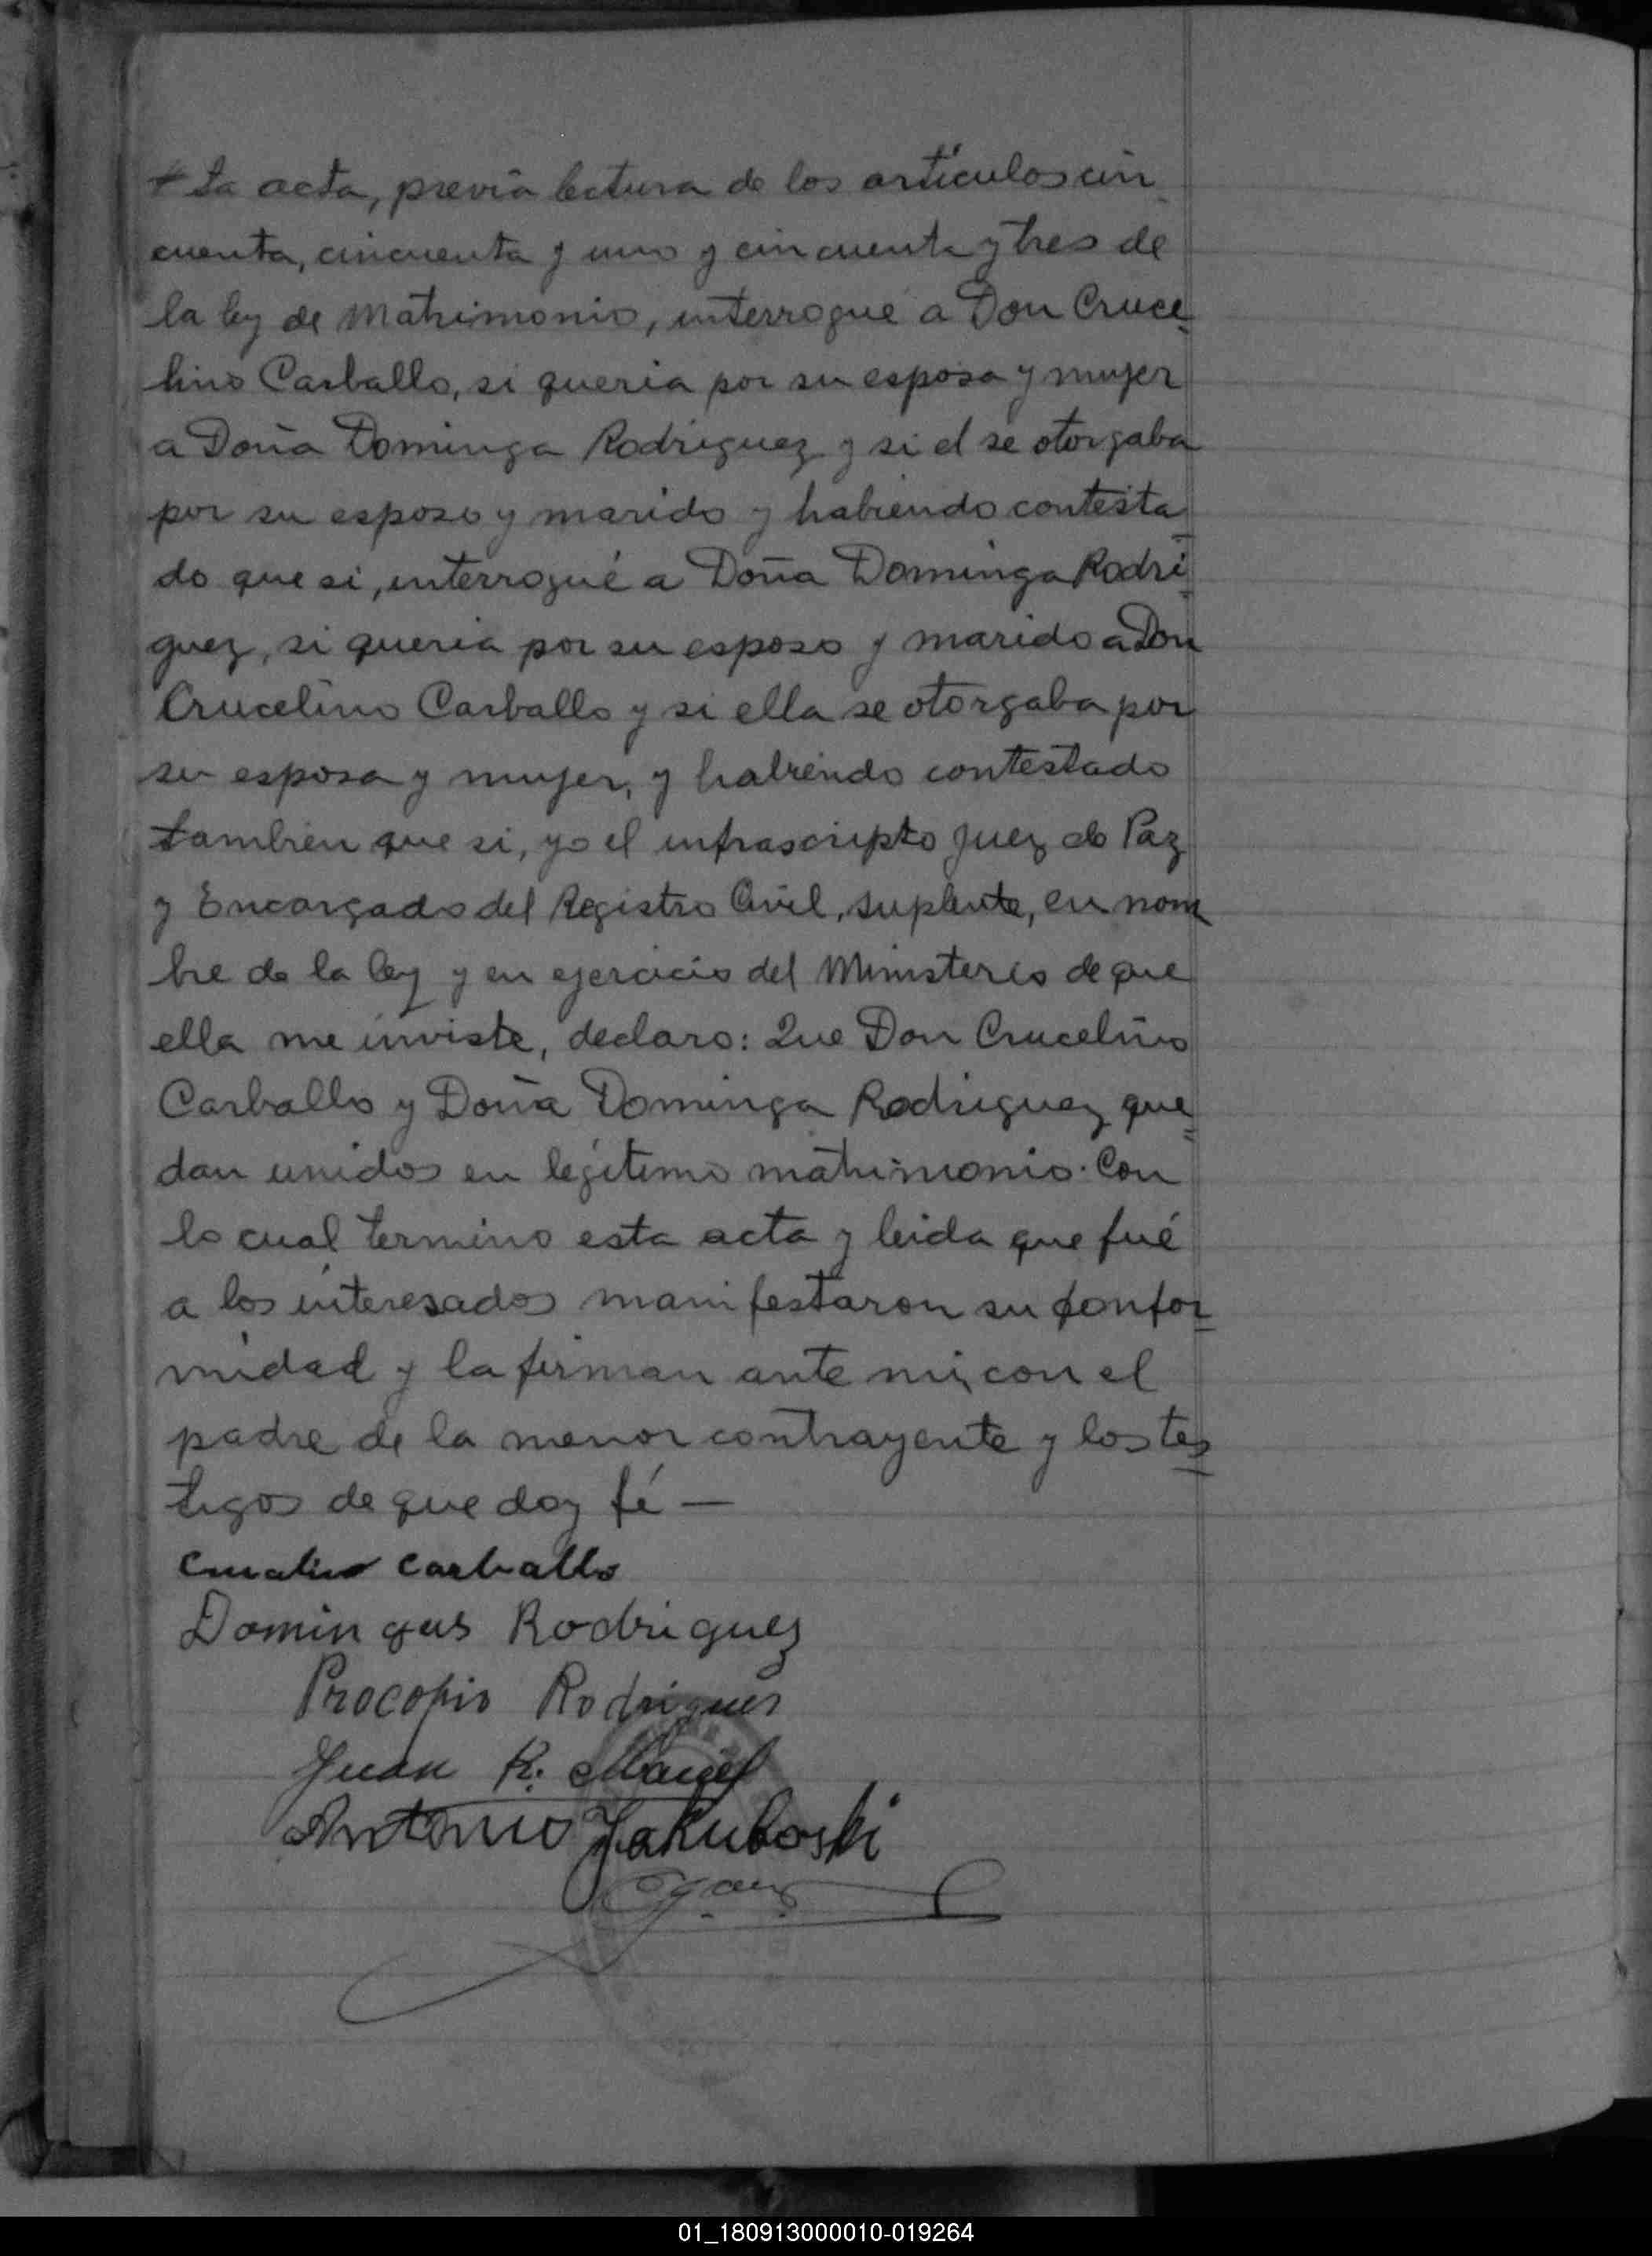 ta acta, previa lectura de los artículos cin
cuenta, cincuenta y uno y cincuenta y tres de
la ley de Matrimonio, interrogué a Don Cruce-
lino Carballo, si queria por su esposa y mujer
a Doña Dominga Rodriguez y si el se otorgaba
por su esposo y marido y habiendo contesta-
do que si, interrogué a Doña Dominga Rodri-
guez, si queria por su esposo y marido a Don
Crucelino Carballo y si ella se otorgaba por
su esposa y mujer, y habiendo contestado
tambien que si, yo el infrascripto Juez de Paz
y Encargado del Registro Civil, suplente, en nom
bre de la ley y en ejercicio del Ministerio de que
ella me inviste, declaro: Que Don Crucelino
Carballo y Doña Dominga Rodriguez que=
dan unidos en legítimo matrimonio. Con
lo cual termino esta acta y leida que fué
a los interesados manifestaron su confor-
midad y la firman ante mi, con el
padre de la menor contrayente y los tes=
tigos de que doy fé —
Carballo
Rodriguez
Procopio Rodrigues
Juan R. Maciel
Antonio Jakuboski
01_180913000010-019264